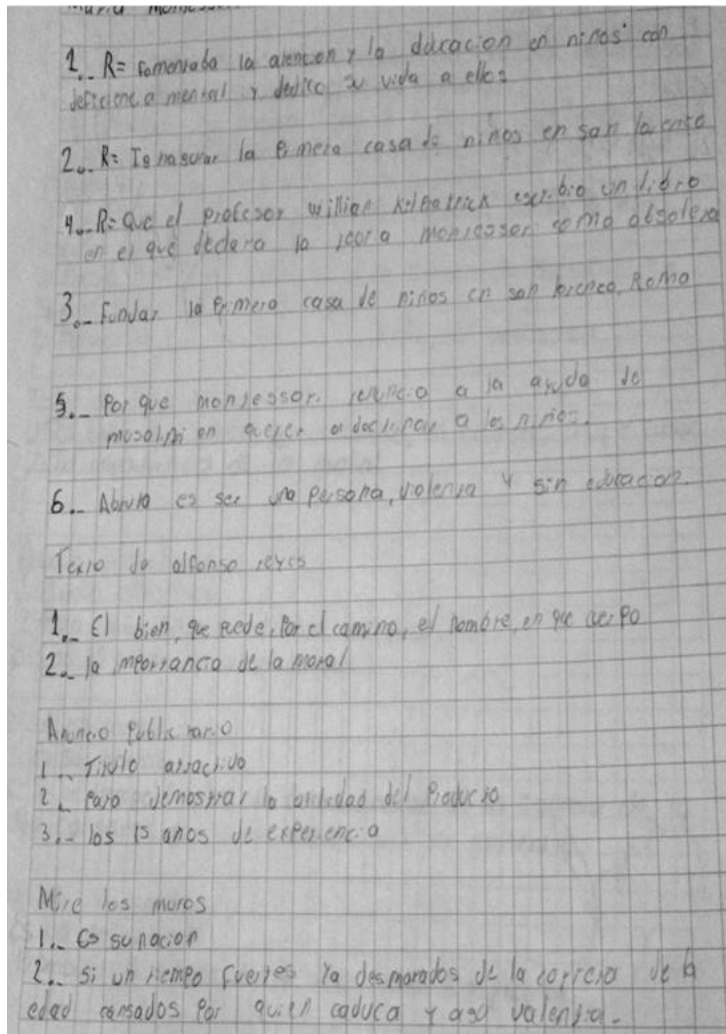 Maria Montessori
1.- R= Fomentaba la atencion y la ducacion en niños con
deficiencia mental y dedico su vida a ellos
2.- R= la primera casa de niños en san
4.- R= Que el profesor willian kilpatrick escribio un libro
en el que declara la teoria montessori como obsoleta
3.- Fundar la primera casa de niños en san Roma
5.- Por que montessori renuncio a la ayuda de
musolini en querer adoctrinar a los niños.
6.- es ser una persona, violenta y sin educacion.
Texto de alfonso reyes
1.- El bien, que puede, por el camino, el hombre, en que
2.- la importancia de la moral
Anuncio Publicitario
1.- Titulo atractivo
2.- Para demostrar la del Producto
3.- los 15 años de experiencia
Mire los muros
1.- Es su nacion
2.- si un tiempo fuertes ya desmorados de la correra de la
edad cansados por quien caduca y valentia.